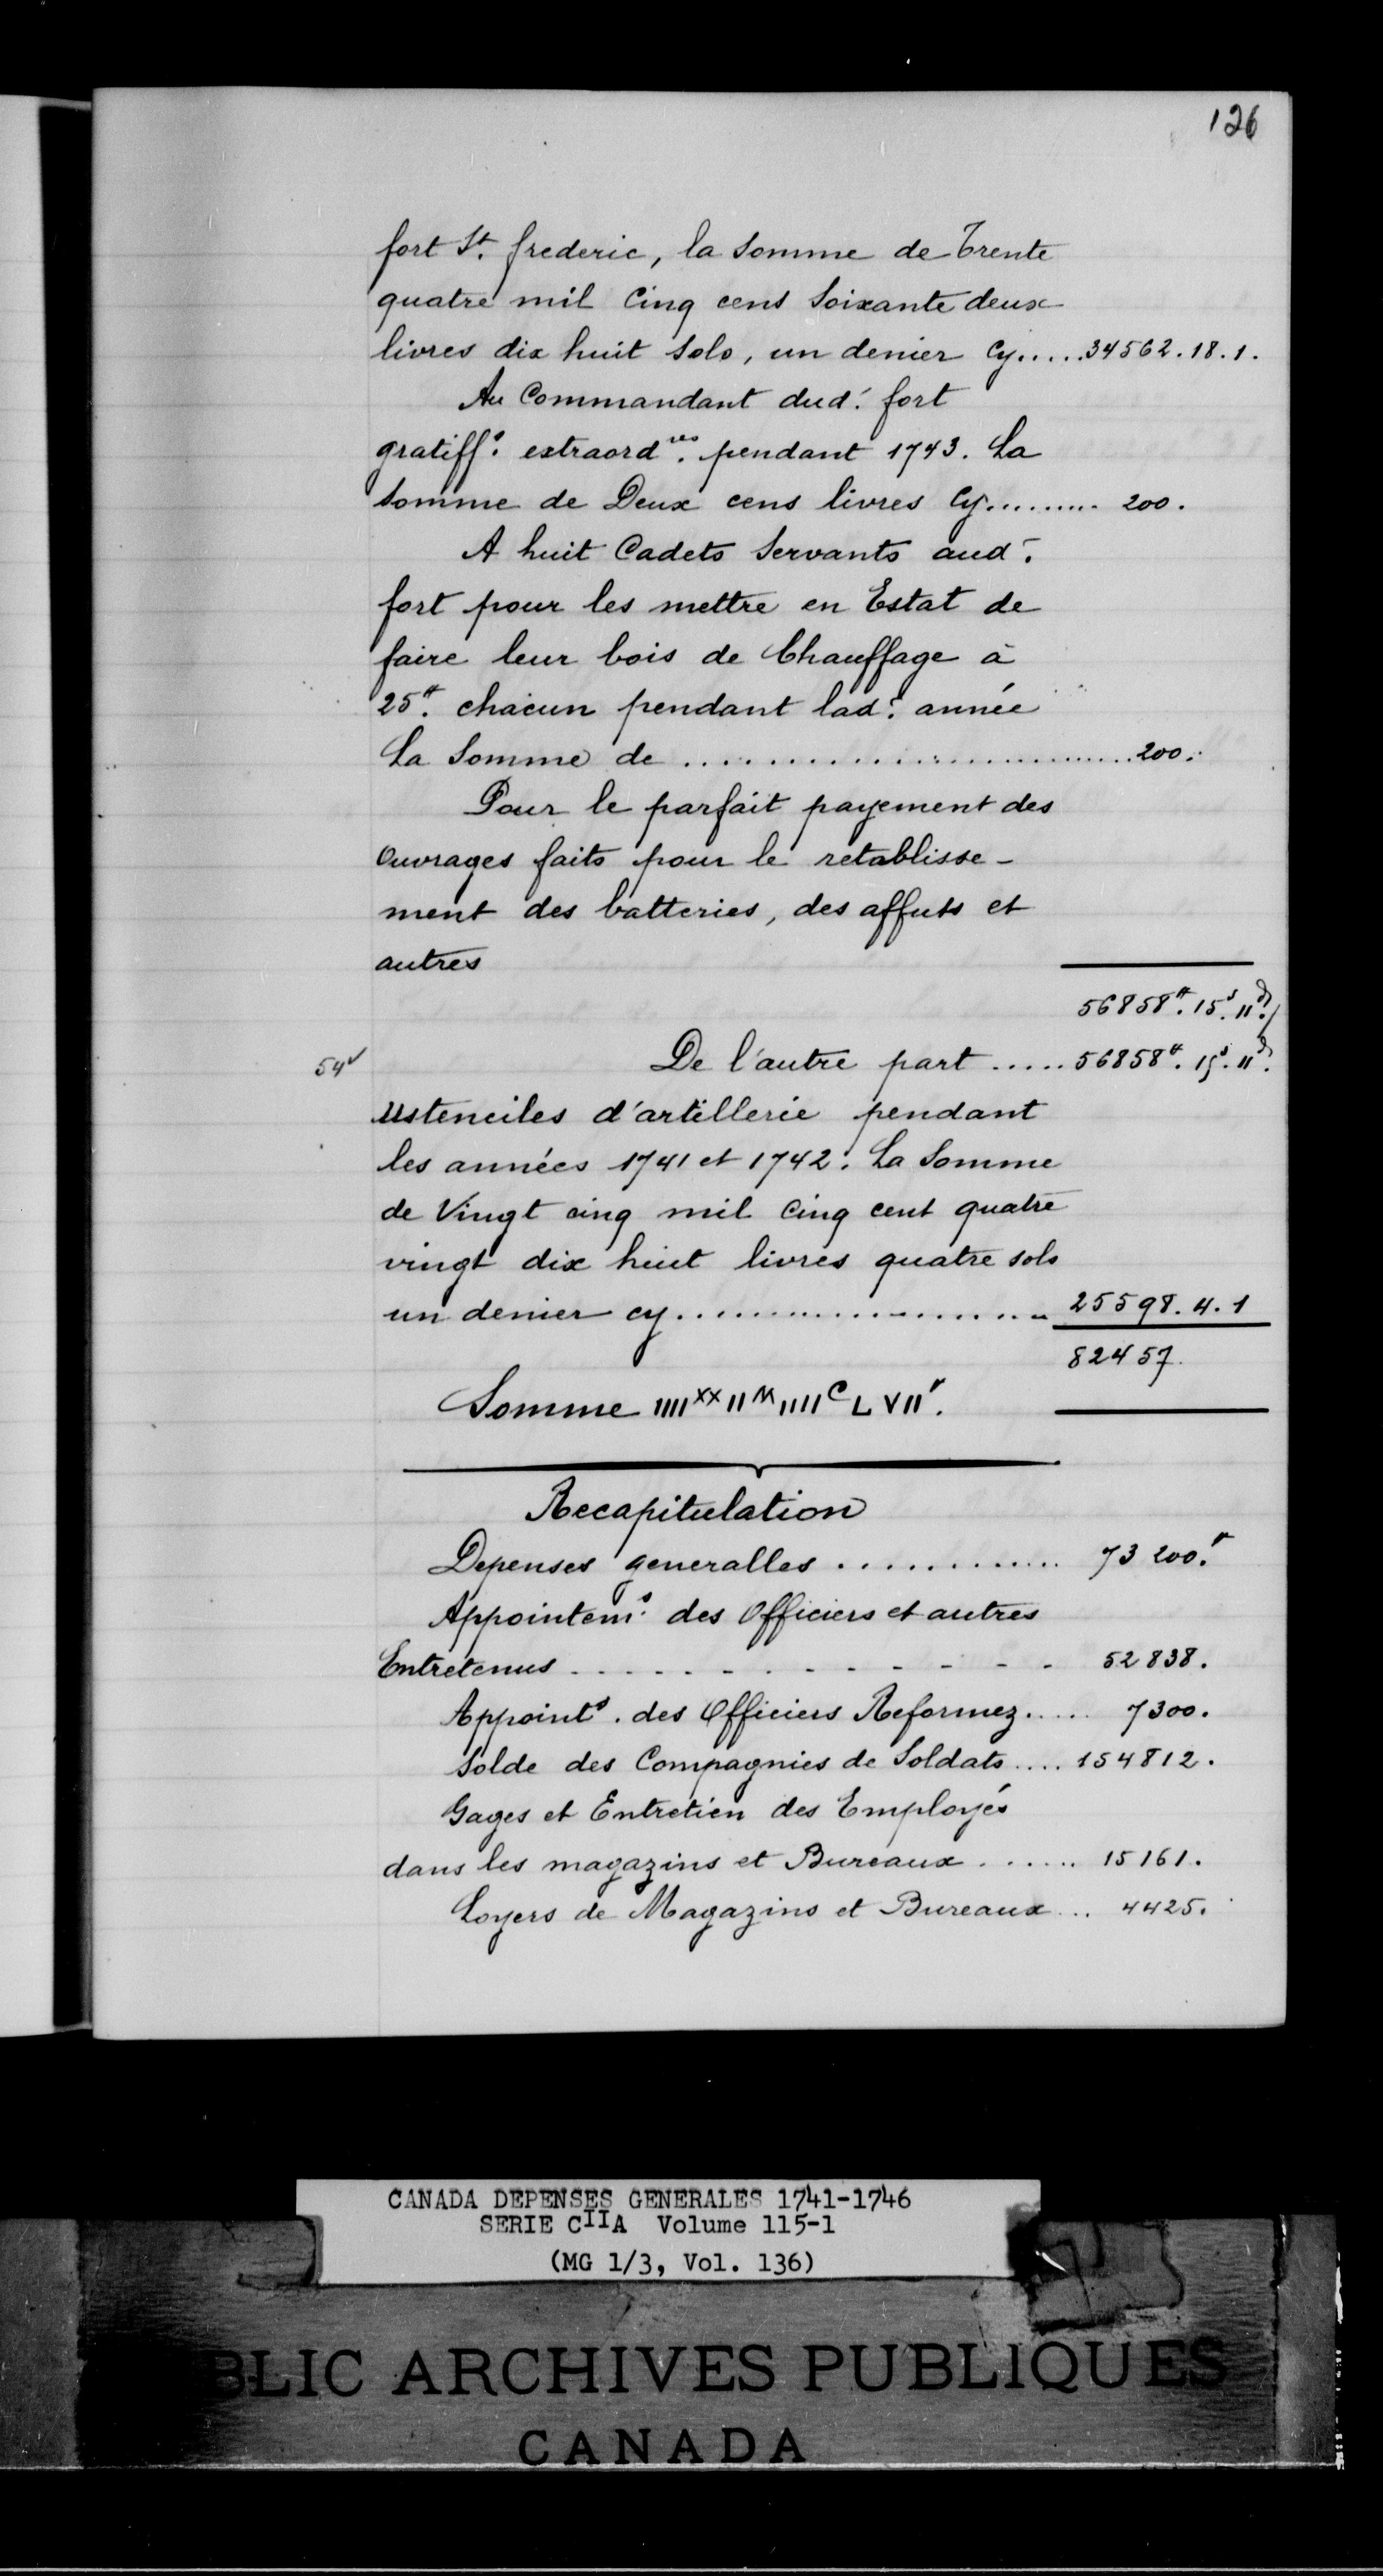 126
fort St. frederic, la Somme de Trente
quatre mil Cinq cens Soixante deux
livres dix huit Sols, un denier Cy..... 34562. 18. 1.
Au Commandant dud. fort
gratiff.s extraord.res pendant 1743. La
Somme de Deux cens livres Cy......... 200.
A huit Cadets Servants aud.
fort pour les mettre en Estat de
faire leur bois de Chauffage à
25.# chacun pendant lad. année
La Somme de .......................... 200.
Pour le parfait payement des
Ouvrages faits pour le retablisse-
ment des batteries, des affuts et
autres
56858#. 15s. 11d./
54v De l'autre part ..... 56858#. 15s. 11d.
Ustenciles d'artillerie pendant
les années 1741 et 1742. La Somme
de Vingt cinq mil Cinq cent quatre
vingt dix huit livres quatre sols
un denier cy................... 25598. 4. 1
82457.
Somme IIIIXX IIM IIIIC LVII#.
Recapitulation
Depenses generalles ............ 73200.#
Appointem.s des Officiers et autres
Entretenus . . . - - - - - - - - - 52838.
Appoint.s des Officiers Reformez..... 7300.
Solde des Compagnies de Soldats.... 154812.
Gages et Entretien des Employés
dans les magazins et Bureaux....... 15161.
Loyers de Magazins et Bureaux... 4425.
CANADA DEPENSES GENERALES 1741-1746
SERIE CIIA Volume 115-1
(MG 1/3, Vol. 136)
BLIC ARCHIVES PUBLIQUES
CANADA